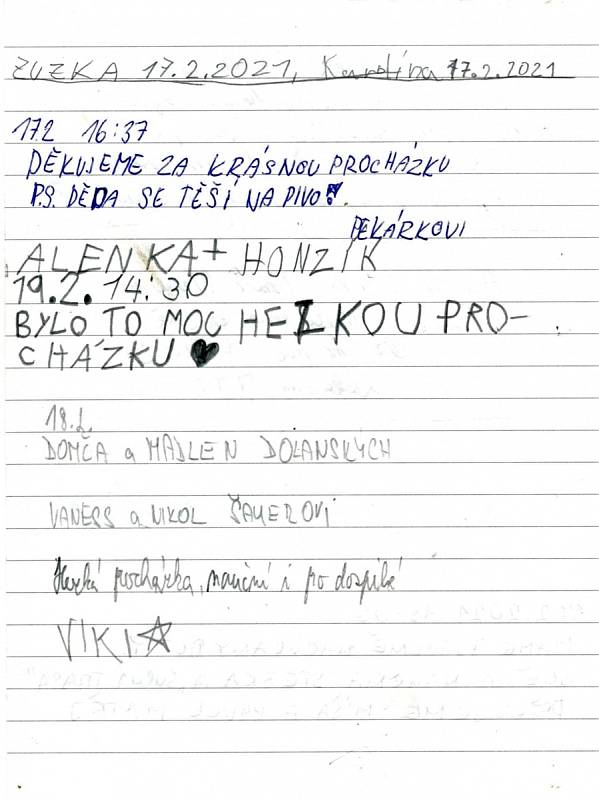 ZUZKA 17.2.2021, Karolína 17.2.2021
17.2 16:37
DĚKUJEME ZA KRÁSNOU PROCHÁZKU
P.S. DĚDA SE TĚŠÍ NA PIVO!.
PEKÁRKOVI
ALENKA + HONZÍK
19.2. 14:30
BYLO TO MOC HEZKOU PRO-
CHÁZKU ♥
18.2.
DOMČA a MADLEN DOLANSKÝCH
VANESS a NIKOL ŠAUEROVI
Hezká procházka, naučná i pro dospělé
VIKI ☆